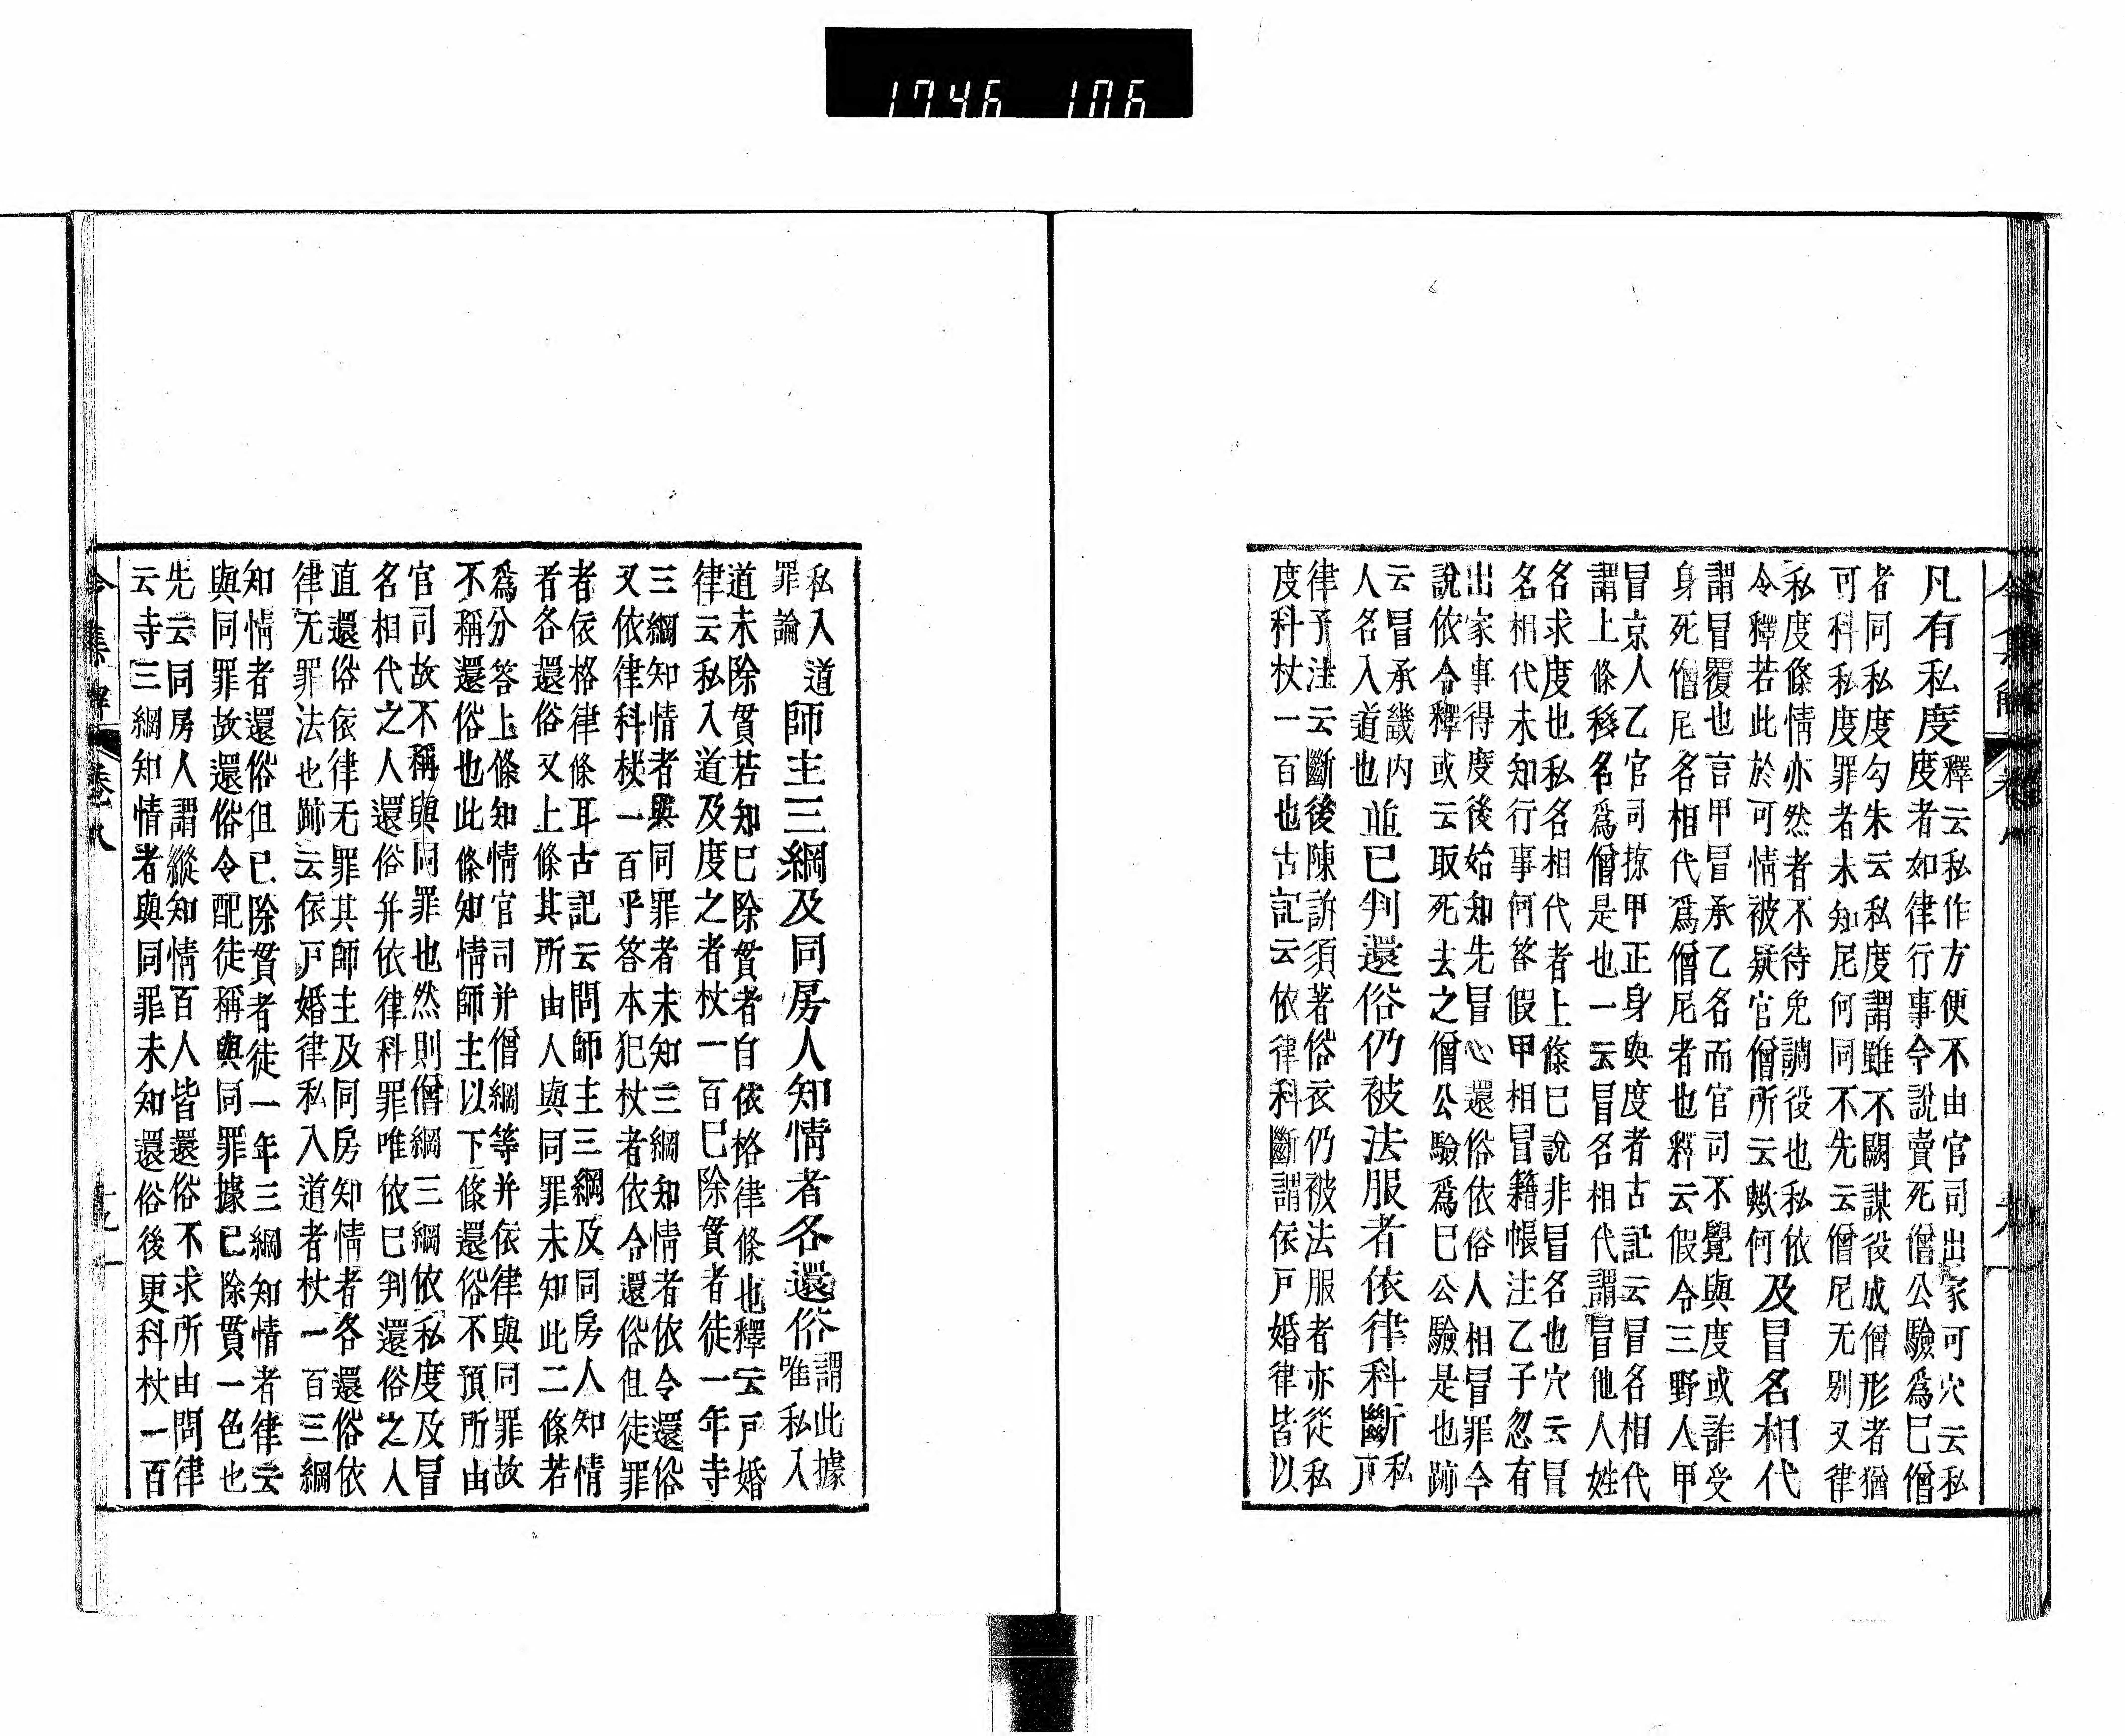 1746 106
凡有私度
釋云私作方便不由官司出家可穴云私
度者如律行事今說賣死僧公驗爲巳僧
者同私度勾朱云私度謂雖不闕課役成僧形者猶
可科私度罪者未知尼何同不先云僧尼无別又律
私度條情亦然者不待免調役也私依
令釋若此於可情被疑官僧所云歟何
及冒名相代
謂冒覆也言甲冒承乙名而官司不覺與度或詐受
身死僧尼名相代爲僧尼者也釋云假令三野人甲
冒京人乙官司掠甲正身與度者古記云冒名相代
謂上條移名爲僧是也一云冒名相代謂冒他人姓
名求度也私名相代者上條巳說非冒名也穴云冒
名相代未知行事何答假甲相冒籍帳注乙子忽有
出家事得度後始知先冒心還俗依俗人相冒罪令
說依令釋或云取死去之僧公驗爲巳公驗是也跡
云冒承畿内
人名入道也
並巳判還俗仍被法服者依律科斷
私
戸
律予注云斷後陳訴須著俗衣仍被法服者亦從私
度科杖一百也古記云依律科斷謂依戸婚律皆以
令集解 卷八
私入道
罪論
師主三綱及同房人知情者各還俗
謂此據
唯私入
道未除貫若知巳除貫者自依格律條也釋云戸婚
律云私入道及度之者杖一百巳除貫者徒一年寺
三綱知情者與同罪者未知三綱知情者依令還俗
又依律科杖一百乎答本犯杖者依令還俗但徒罪
者依格律條耳古記云問師主三綱及同房人知情
者各還俗又上條其所由人與同罪未知此二條若
爲分答上條知情官司并僧綱等并依律與同罪故
不稱還俗也此條知情師主以下條還俗不預所由
官司故不稱與同罪也然則僧綱三綱依私度及冒
名相代之人還俗并依律科罪唯依巳判還俗之人
直還俗依律无罪其師主及同房知情者各還俗依
律无罪法也跡云依戸婚律私入道者杖一百三綱
知情者還俗但巳除貫者徒一年三綱知情者律云
與同罪故還俗令配徒稱與同罪據巳除貫一色也
先云同房人謂縱知情百人皆還俗不求所由問律
云寺三綱知情者與同罪未知還俗後更科杖一百
令集解 卷八